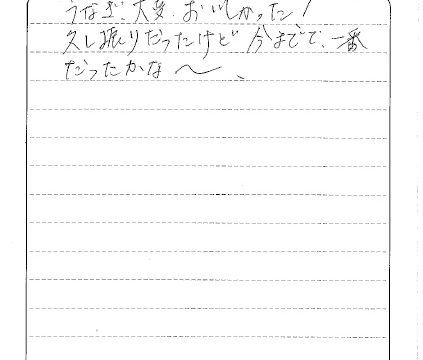 うなぎ、大変おいしかった！
久し振りだったけど今までで、一番
だったかな〜、